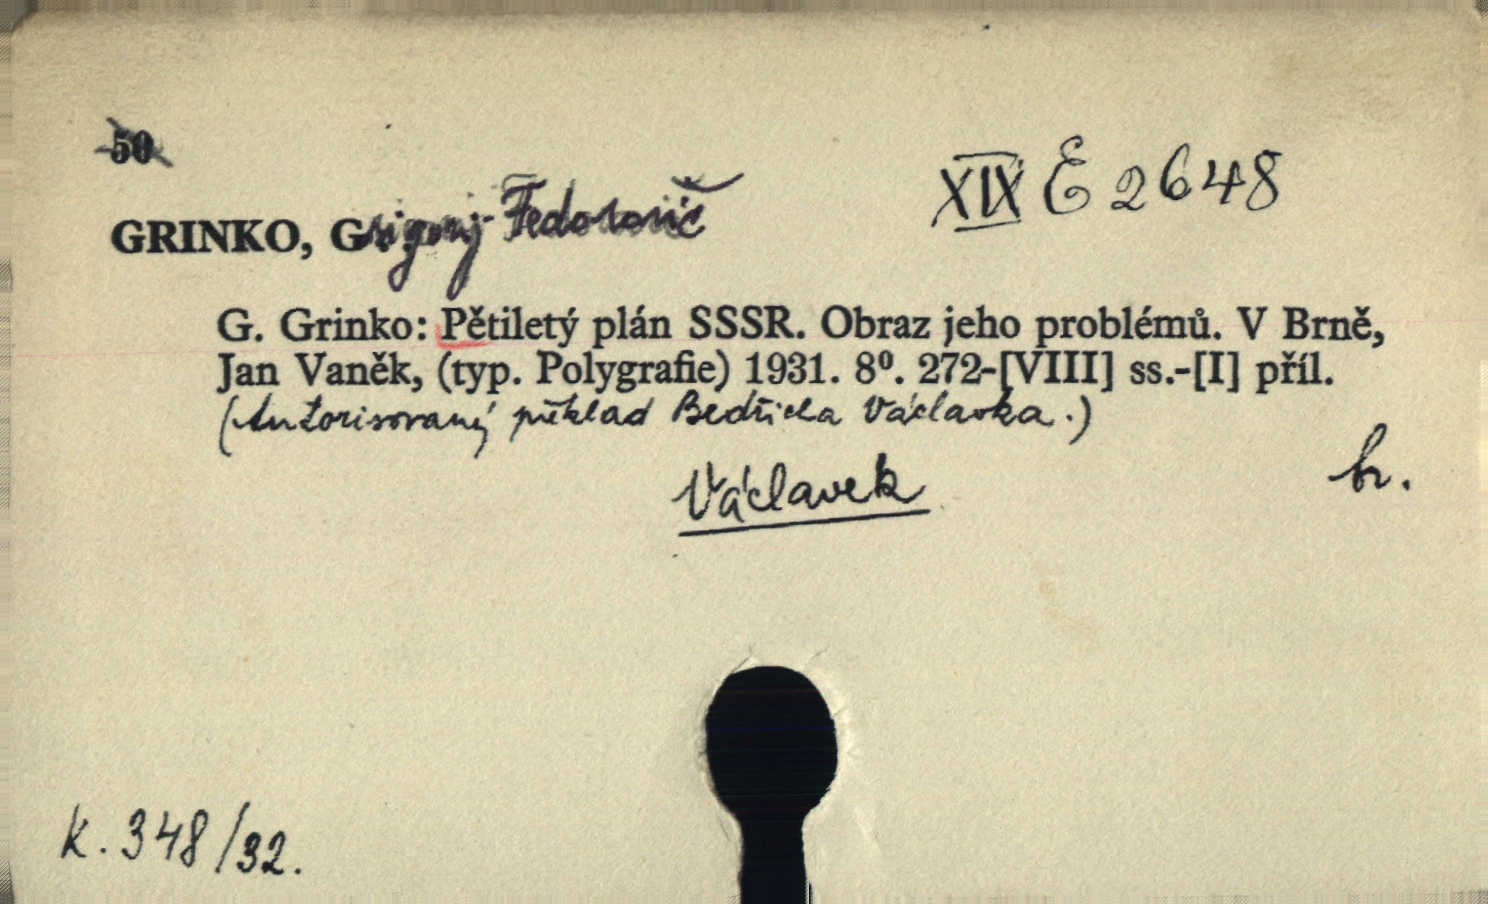 50
XIX E 2648
GRINKO, Grigorij Fedorovič
G. Grinko: Pětiletý plán SSSR. Obraz jeho problémů. V Brně,
Jan Vaněk, (typ. Polygrafie) 1931. 8⁰. 272-[VIII] ss.-[I] příl.
(Autorisovaný překlad Bedřicha Václavka.)
br.
Václavek
K. 348/32.